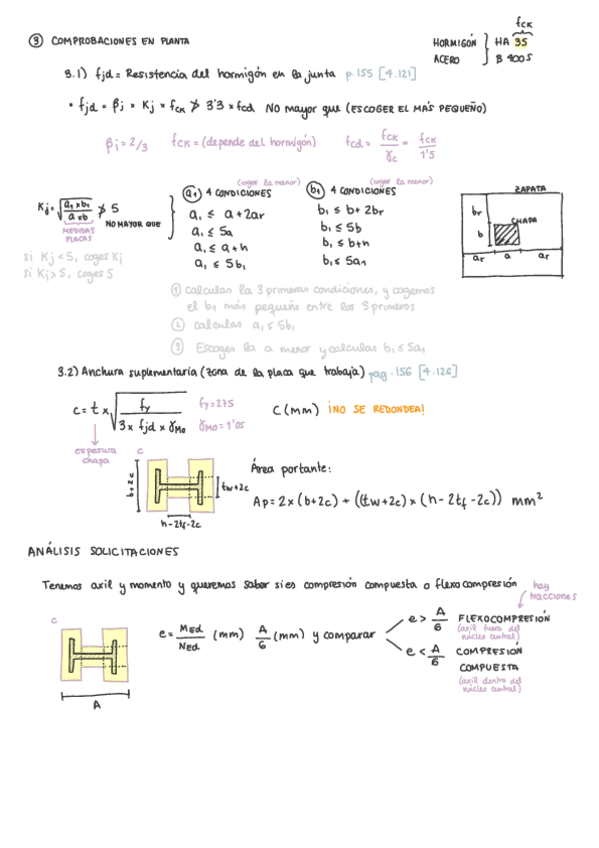 ③ COMPROBACIONES EN PLANTA
fck
HORMIGÓN } HA 35
ACERO } B 400 S
3.1) fjd = Resistencia del hormigón en la junta p.155 [4.121]
• fjd = βj × Kj × fck ≯ 3'3 × fcd NO MAYOR QUE (ESCOGER EL MÁS PEQUEÑO)
βj = 2/3 fck = (depende del hormigón) fcd = fck/γc = fck/1'5
Kj = √(a1 × b1 / a × b) ≯ 5
MEDIDAS PLACAS
NO MAYOR QUE
si Kj < 5, coges Kj
si Kj > 5, coges 5
(coger la menor)
a1 4 CONDICIONES
a1 ≤ a + 2ar
a1 ≤ 5a
a1 ≤ a + h
a1 ≤ 5b1
(coger la menor)
b1 4 CONDICIONES
b1 ≤ b + 2br
b1 ≤ 5b
b1 ≤ b + h
b1 ≤ 5a1
ZAPATA
br
CHAPA
b
ar a ar
① calculas la 3 primeras condiciones, y cogemos
el b1 más pequeño entre los 3 primeros
② calculas a1 ≤ 5b1
③ Escogen la a menor y calculas b1 ≤ 5a1
3.2) Anchura suplementaria (zona de la placa que trabaja) pag. 156 [4.126]
c = t × √(fy / 3 × fjd × γM0)
fy = 275
γM0 = 1'05
C (mm) ¡NO SE REDONDEA!
espesura chapa
c
b + 2c
tw + 2c
h - 2tf - 2c
Área portante:
Ap = 2 × (b + 2c) + ((tw + 2c) × (h - 2tf - 2c)) mm²
ANÁLISIS SOLICITACIONES
Tenemos axil y momento y queremos saber si es compresión compuesta o flexocompresión
hay tracciones
c
A
e = Med/Ned (mm) A/6 (mm) y comparar
e > A/6 FLEXOCOMPRESIÓN
(axil fuera del núcleo central)
e < A/6 COMPRESIÓN COMPUESTA
(axil dentro del núcleo central)